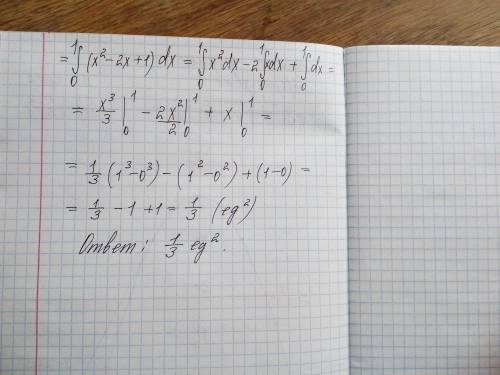 = ∫₀¹ (x² - 2x + 1) dx = ∫₀¹ x² dx - 2 ∫₀¹ x dx + ∫₀¹ dx =
= x³/3 |₀¹ - 2x²/2 |₀¹ + x |₀¹ =
= 1/3 (1³ - 0³) - (1² - 0²) + (1 - 0) =
= 1/3 - 1 + 1 = 1/3 (eg²)
Ответ: 1/3 eg².